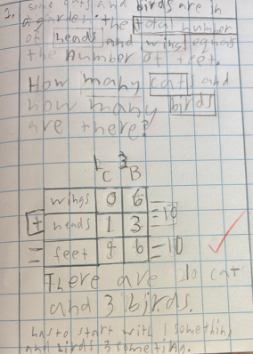 2. some cats and birds are in
a garden. the total number
of heads and wings equals
the number of feet.
How many cats and
how many birds
are there?
1 3
C B
wings 0 6 = 10
+ heads 1 3
= feet 4 6 = 10
There are 1 cat
and 3 birds.
start with 1 something
and birds 3 something.